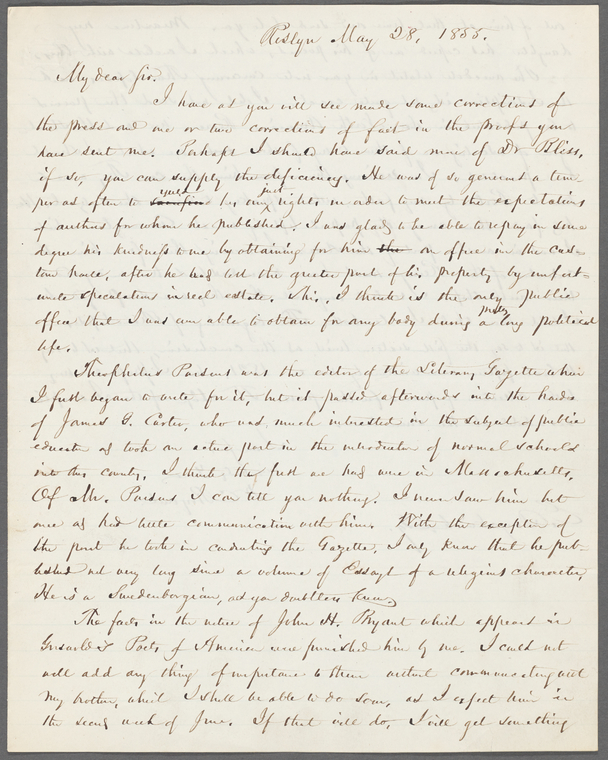 Roslyn May 28, 1855.
My dear Sir.
I have as you will see made some corrections of
the press and one or two corrections of fact in the proofs you
have sent me. Perhaps I should have said more of Dr Bliss,
if so, you can supply the deficiency. He was of so generous a tem-
per as often to yield his own just rights in order to meet the expectations
of authors for whom he published. I was glad to be able to repay in some
degree his kindness to me by obtaining for him an office in the cus-
tom house, after he had lost the greater part of his property by unfort-
unate speculations in real estate. This, I think is the only public
office that I was ever able to obtain for any body during a pretty long political
life.
Theophilus Parsons was the editor of the Literary Gazette when
I first began to write for it, but it passed afterwards into the hands
of James G. Carter, who was much interested in the subject of public
education and took an active part in the introduction of normal schools
into this country. I think the first we had were in Massachusetts.
Of Mr. Parsons I can tell you nothing. I never saw him but
once and had little communication with him. With the exception of
the part he took in conducting the Gazette, I only know that he pub-
lished not very long since a volume of Essays of a religious character,
He is a Swedenborgian, as you doubtless know,
The facts in the notice of John H. Bryant which appears in
Griswold's Poets of America were furnished him by me. I could not
well add any thing of importance to them without communicating with
my brother, which I shall be able to do soon, as I expect him in
the second week of June. If that will do, I will get something